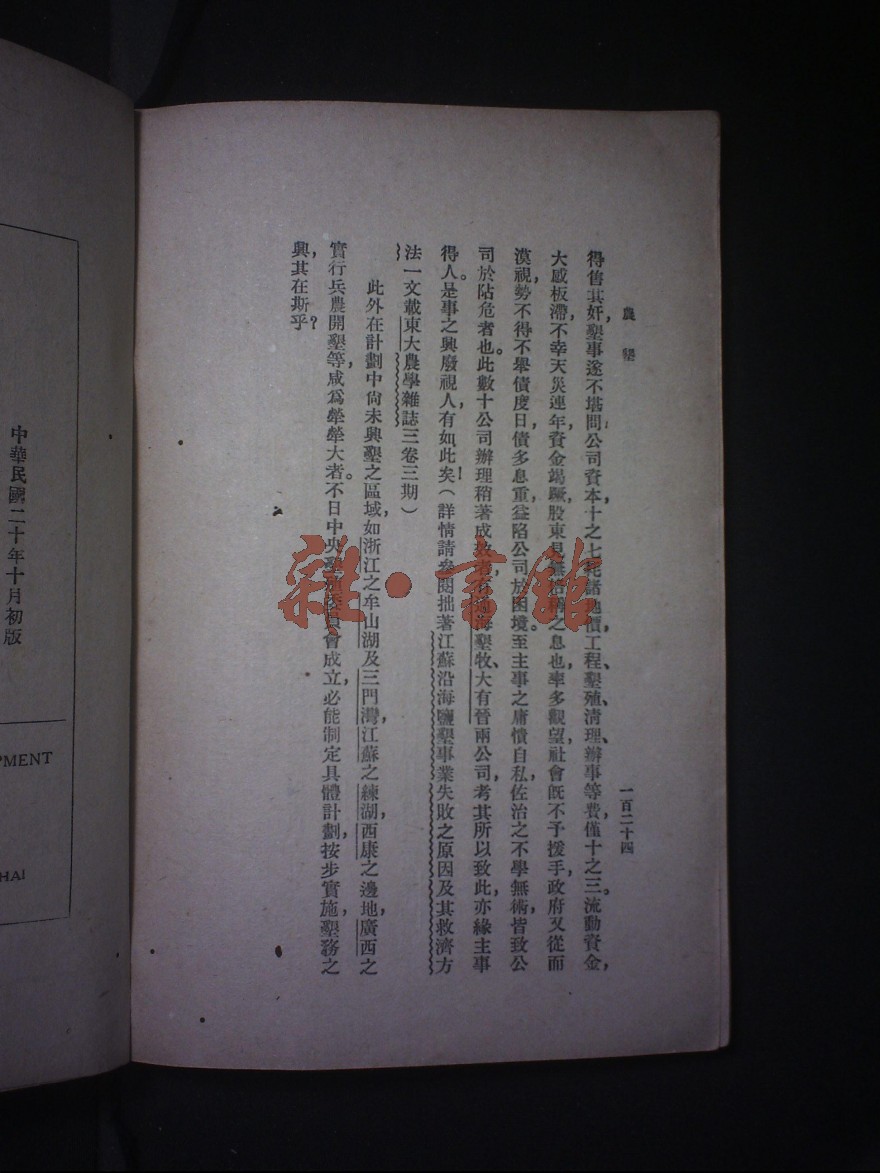 農墾
一百二十四
得售其奸，墾事遂不堪問，公司資本十之七耗諸地價、工程、墾殖、清理、辦事等費，僅十之三。流動資金，
大感板滯，不幸天災連年，資金竭蹶，股東見無
之息也，率多觀望，社會既不予援手，政府又從而
漠視，勢不得不舉債度日，債多息重，益陷公司於困境。至主事之庸憒自私，佐治之不學無術，皆致公
司於阽危者也。此數十公司辦理稍著成效者，有通海墾牧、大有晉兩公司，考其所以致此，亦緣主事
得人。是事之興廢，視人有如此矣！（詳情請參閱拙著江蘇沿海鹽墾事業失敗之原因及其救濟方
法一文載東大農學雜誌三卷三期）
此外在計劃中尚未興墾之區域，如浙江之牟山湖及三門灣，江蘇之練湖，西康之邊地，廣西之
實行兵農開墾等，咸爲犖犖大者。不日中央墾殖委員會成立，必能制定具體計劃，按步實施，墾務之
興，其在斯乎？
中華民國二十年十月初版
PMENT
HAI
雜·書館